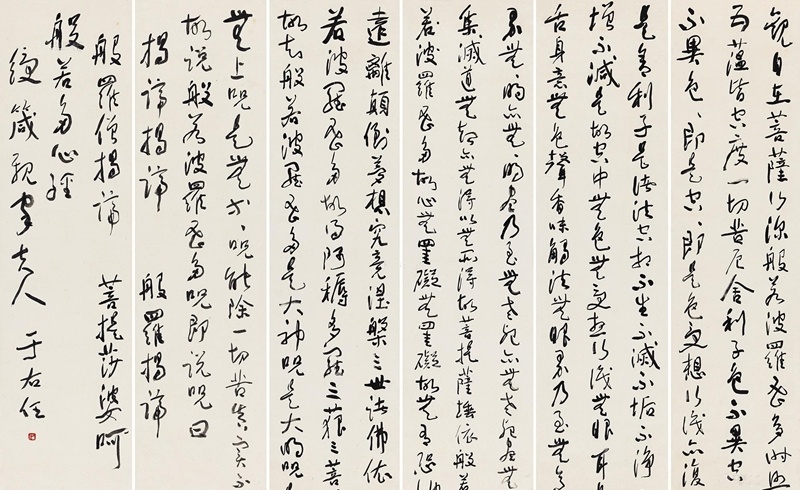 觀自在菩薩行深般若波羅蜜多時照
五蘊皆空度一切苦厄舍利子色不異空
不異色〻即是空〻即是色受想行識亦復
是舍利子是諸法空相不生不滅不垢不淨
增不減是故空中無色無受想行識無眼耳
舌身意無色聲香味觸法無眼界乃至無意
界無〻明亦無〻明盡乃至無老死亦無老死盡無
集滅道無智亦無得以無所得故菩提薩埵依般若
若波羅蜜多故心無罣礙無罣礙故無有恐怖
遠離顛倒夢想究竟涅槃三世諸佛依
若波羅蜜多故得阿耨多羅三藐三菩
故知般若波羅蜜多是大神呪是大明呪是
無上呪是無等〻呪能除一切苦真實不
故說般若波羅蜜多呪即說呪曰
揭諦揭諦 般羅揭諦
般羅僧揭諦 菩提莎婆呵
般若多心經
綬箴親家夫人 于右任